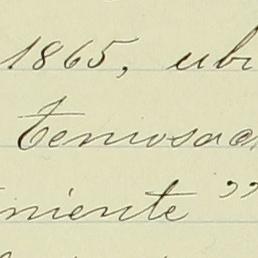 1865, ubi
Temosac
niente "